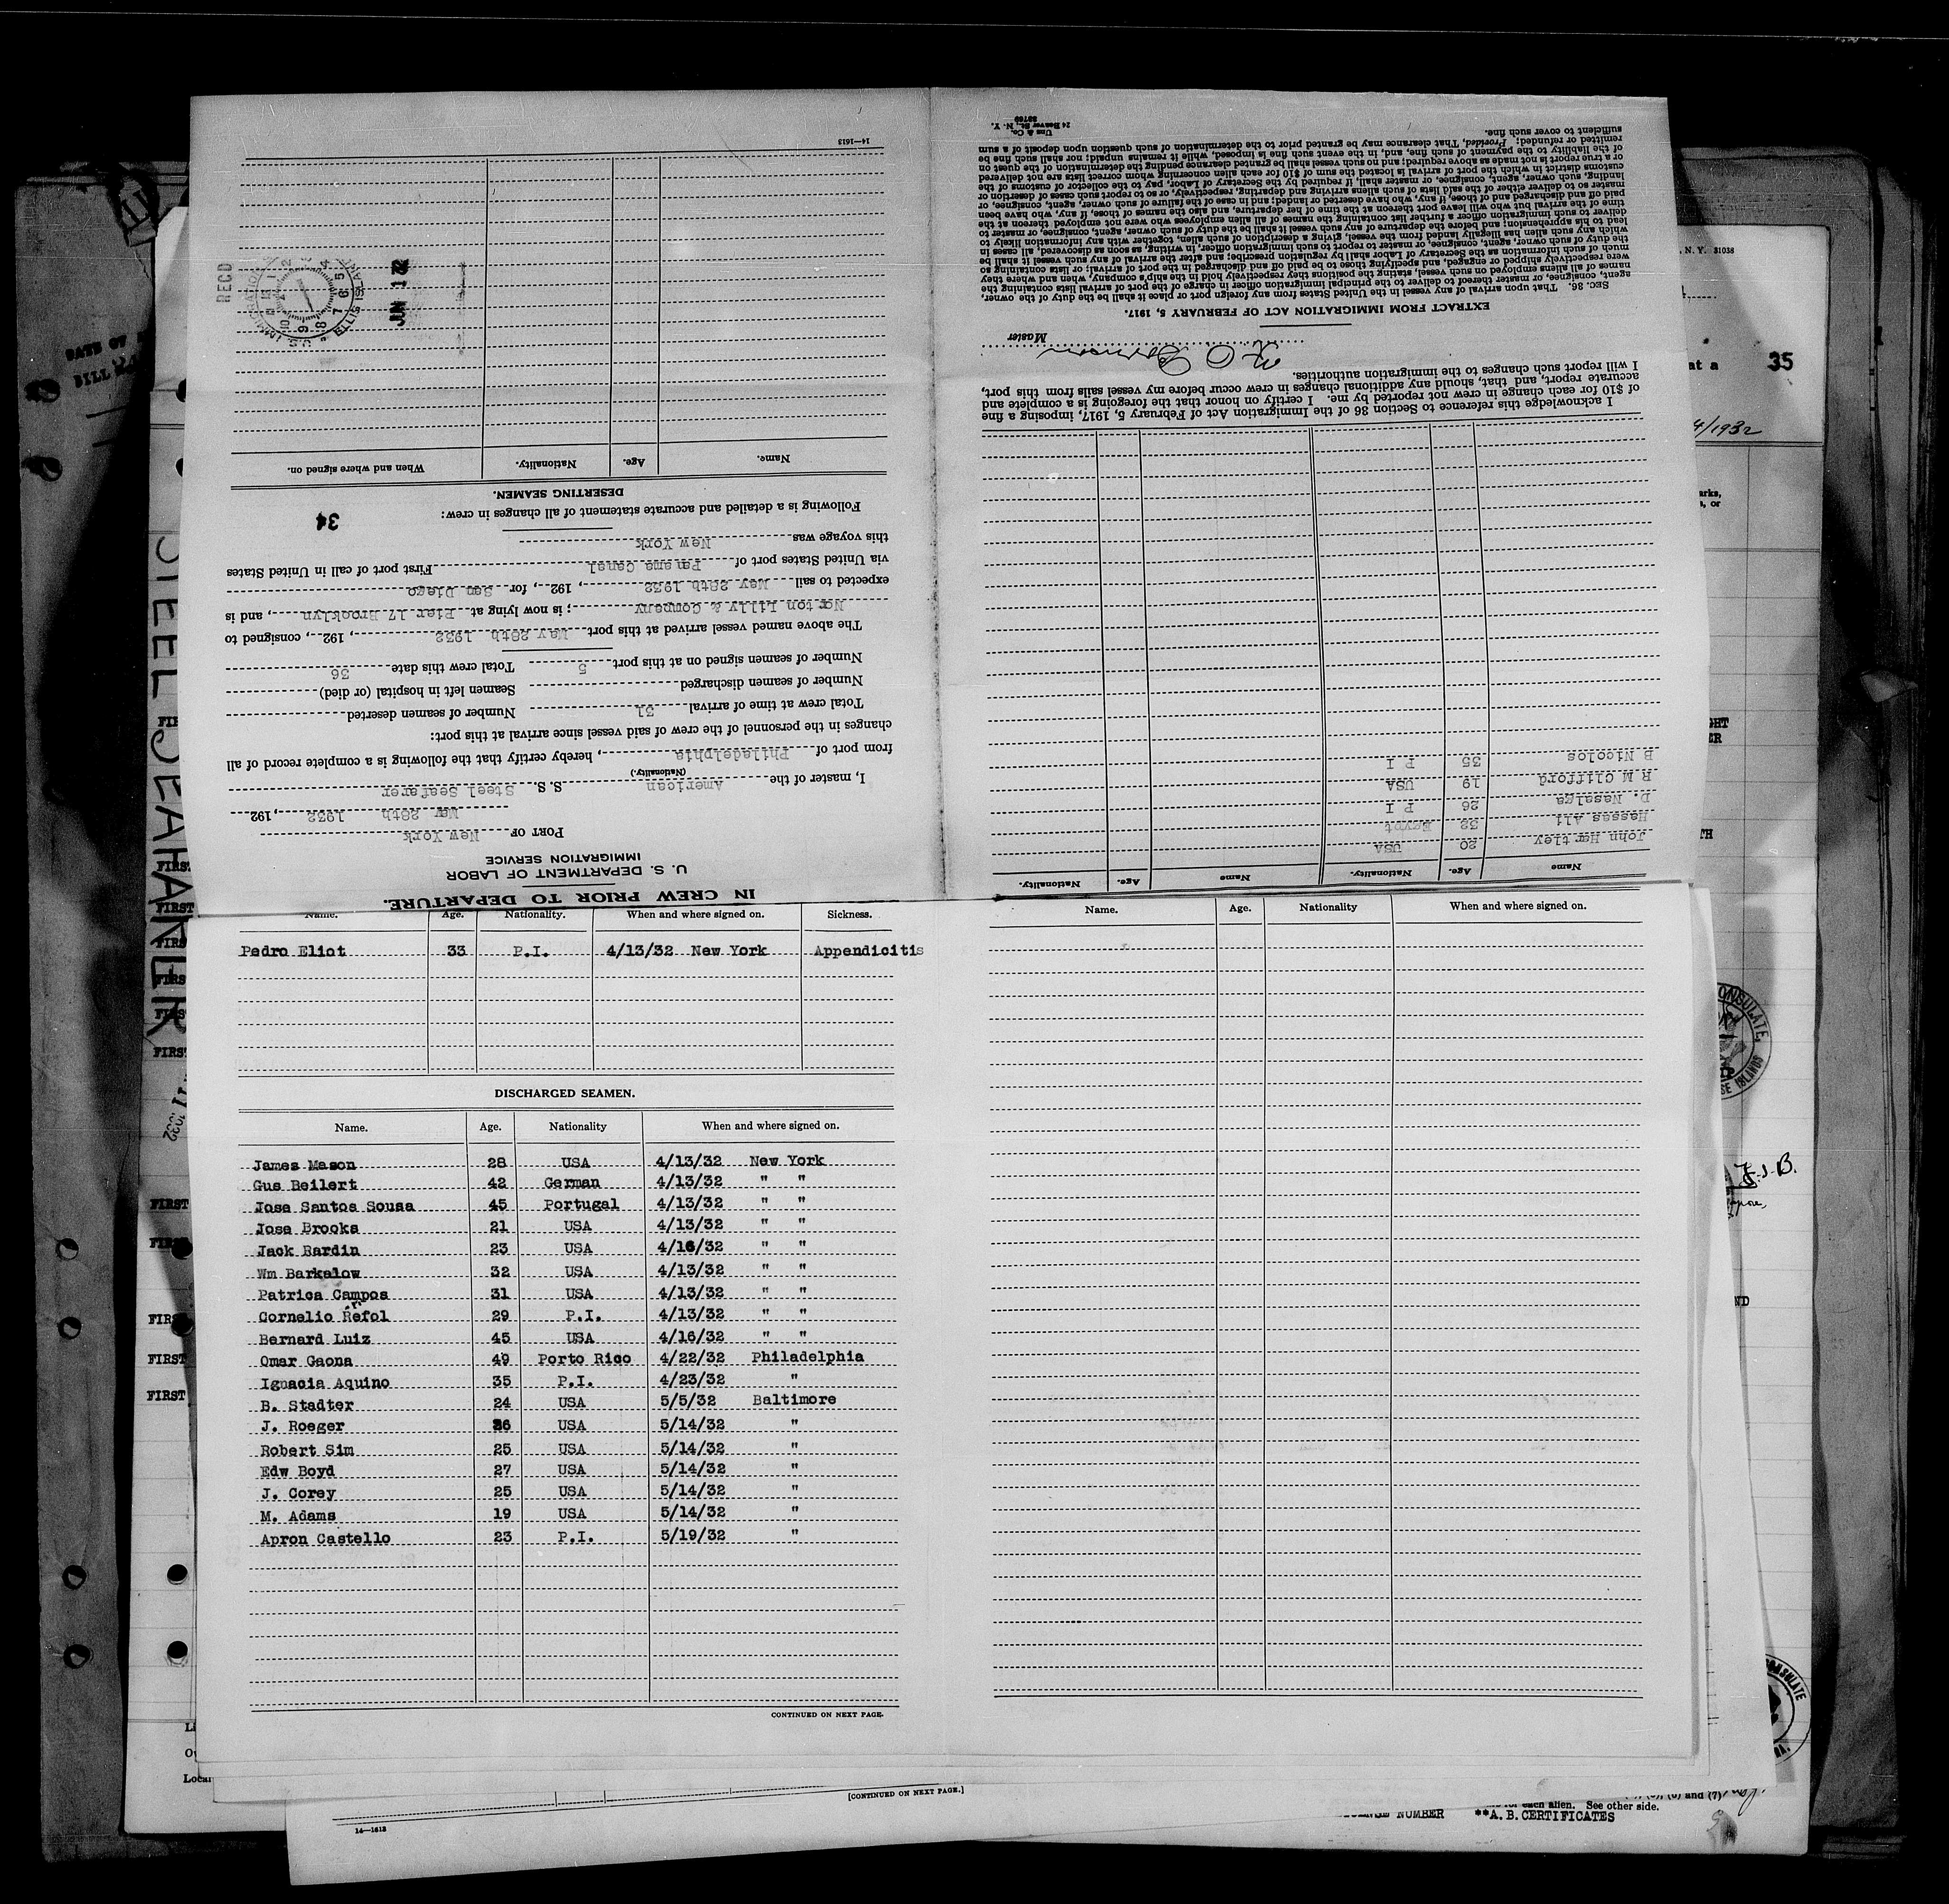 IN CREW PRIOR TO DEPARTURE.
U. S. DEPARTMENT OF LABOR
IMMIGRATION SERVICE
PORT OF New York
May 28th 1932, 192
I, master of the American S. S. Steel Seafarer
(Nationality.)
from port of Philadelphia, hereby certify that the following is a complete record of all
changes in the personnel of the crew of said vessel since arrival at this port:
Total crew at time of arrival 31 Number of seamen deserted
Number of seamen discharged Seamen left in hospital (or died)
Number of seamen signed on at this port 5 Total crew this date 36
The above named vessel arrived at this port May 28th 1932, 192, consigned to
Norton Lilly & Company; is now lying at Pier 17 Brooklyn, and is
expected to sail May 28th 1932, 192, for San Diego
via United States port of Panama Canal First port of call in United States
this voyage was New York
34
Following is a detailed and accurate statement of all changes in crew:
DESERTING SEAMEN.
Name. Age. Nationality. When and where signed on.
JUN 1
RECD
U.S. IMMIGRATION ELLIS ISLAND
14—1613
Name Age. Nationality. Name Age. Nationality.
John Hartley 20 USA
Hasses Ali 32 Egypt
D. Nasalga 26 P I
R M Clifford 19 USA
B Nicolos 35 P I
I acknowledge this reference to Section 36 of the Immigration Act of February 5, 1917, imposing a fine
of $10 for each change in crew not reported by me. I certify on honor that the foregoing is a complete and
accurate report, and that, should any additional changes in crew occur before my vessel sails from this port,
I will report such changes to the immigration authorities.
Master
EXTRACT FROM IMMIGRATION ACT OF FEBRUARY 5, 1917.
SEC. 36. That upon arrival of any vessel in the United States from any foreign port or place it shall be the duty of the owner,
agent, consignee, or master thereof to deliver to the principal immigration officer in charge of the port of arrival lists containing the
names of all aliens employed on such vessel, stating the positions they respectively hold in the ship's company, when and where they
were respectively shipped or engaged, and specifying those to be paid off and discharged in the port of arrival; or lists containing so
much of such information as the Secretary of Labor shall by regulation prescribe; and after the arrival of any such vessel it shall be
the duty of such owner, agent, consignee, or master to report to such immigration officer, in writing, as soon as discovered, all cases in
which any such alien has illegally landed from the vessel, giving a description of such alien, together with any information likely to
lead to his apprehension; and before the departure of any such vessel it shall be the duty of such owner, agent, consignee, or master to
deliver to such immigration officer a further list containing the names of all alien employees who were not employed thereon at the
time of the arrival but who will leave port thereon at the time of her departure, and also the names of those, if any, who have been
paid off and discharged and of those, if any, who have deserted or landed; and in case of the failure of such owner, agent, consignee, or
master so to deliver either of the said lists of such aliens arriving and departing, respectively, or so to report such cases of desertion or
landing, such owner, agent, consignee, or master shall, if required by the Secretary of Labor, pay to the collector of customs of the
customs district in which the port of arrival is located the sum of $10 for each alien concerning whom correct lists are not delivered
or a true report is not made as above required; and no such vessel shall be granted clearance pending the determination of the quest on
of the liability to the payment of such fine, and, in the event such fine is imposed, while it remains unpaid; nor shall such fine be
remitted or refunded: Provided, That clearance may be granted prior to the determination of such question upon deposit of a sum
sufficient to cover such fine.
Unz & Co.
24 Beaver St., N. Y.
Name. Age. Nationality. When and where signed on. Sickness.
Pedro Eliot 33 P.I. 4/13/32 New York Appendicitis
DISCHARGED SEAMEN.
Name. Age. Nationality When and where signed on.
James Mason 28 USA 4/13/32 New York
Gus Beilert 42 German 4/13/32 " "
Jose Santos Sousa 45 Portugal 4/13/32 " "
Jose Brooks 21 USA 4/13/32 " "
Jack Rardin 23 USA 4/16/32 " "
Wm Barkalow 32 USA 4/13/32 " "
Patrica Campos 31 USA 4/13/32 " "
Cornelio Refol 29 P.I. 4/13/32 " "
Bernard Luiz 45 USA 4/16/32 " "
Omar Gaona 49 Porto Rico 4/22/32 Philadelphia
Ignacia Aquino 35 P.I. 4/23/32 "
B. Stadter 24 USA 5/5/32 Baltimore
J. Roeger 26 USA 5/14/32 "
Robert Sim 25 USA 5/14/32 "
Edw Boyd 27 USA 5/14/32 "
J. Corey 25 USA 5/14/32 "
M. Adams 19 USA 5/14/32 "
Apron Castello 23 P.I. 5/19/32 "
CONTINUED ON NEXT PAGE.
Name. Age. Nationality When and where signed on.
[CONTINUED ON NEXT PAGE.]
14—1613
N. Y. 31038
at a 35
4/1932
DATE OF
BILL
STEEL SEAFARER
FIRST
FIRST
FIRST
FIRST
FIRST
CONSULATE
ISLANDS
J.J.B.
CONSULATE
for each alien. See other side.
NUMBER **A.B.CERTIFICATES